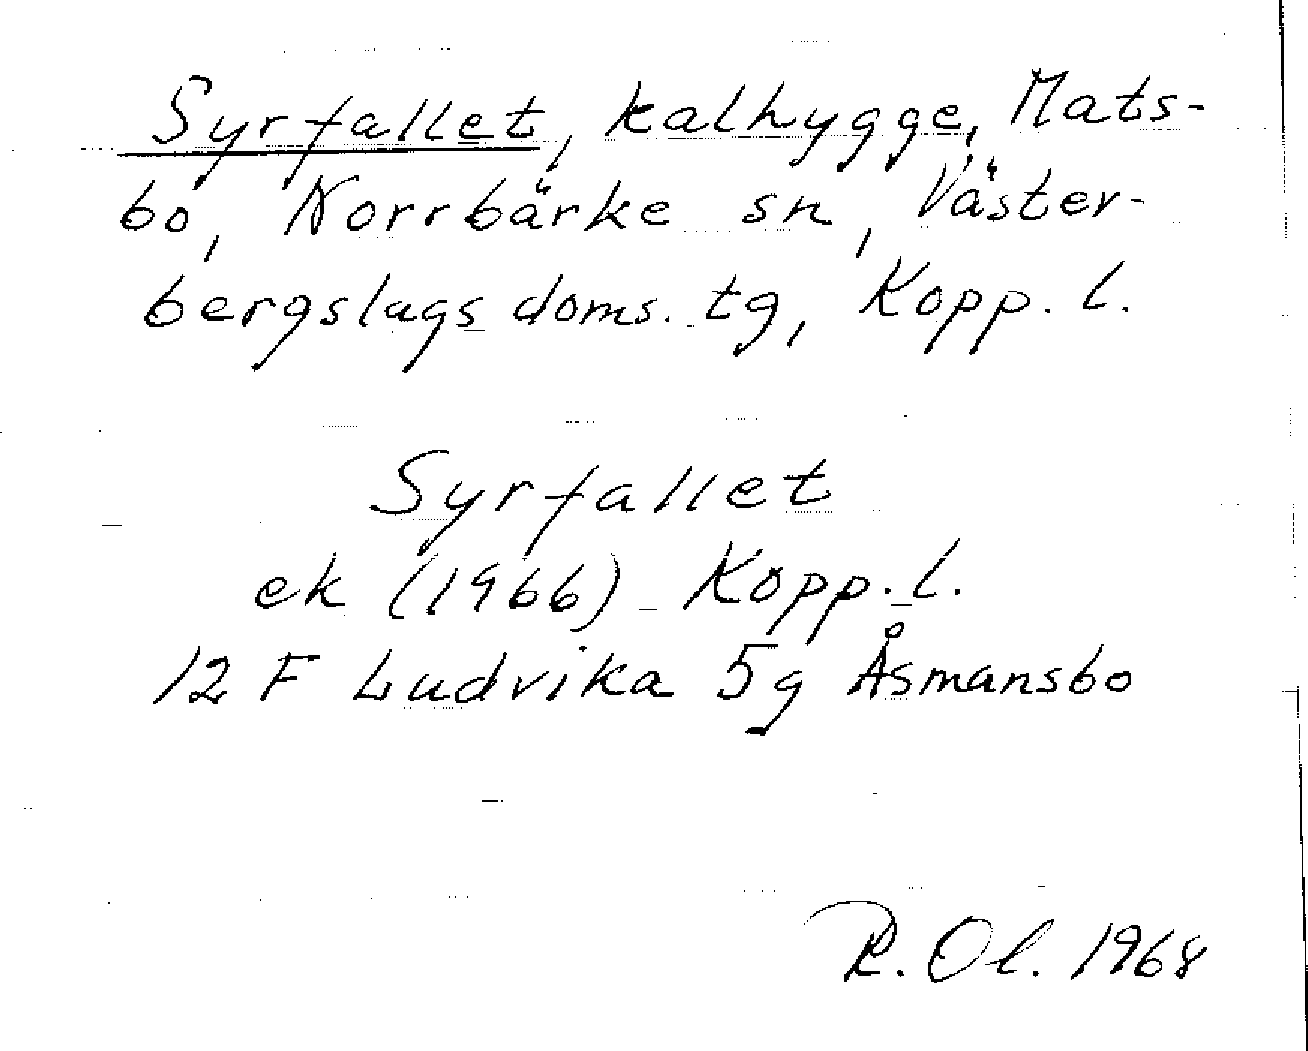 Syrfallet, kalhygge, Mats-
bo, Norrbärke sn, Väster-
bergslags doms. tg, Kopp. l.
Syrfallet
ek (1966) Kopp. l.
12 F Ludvika 5g Åsmansbo
R. Ol. 1968